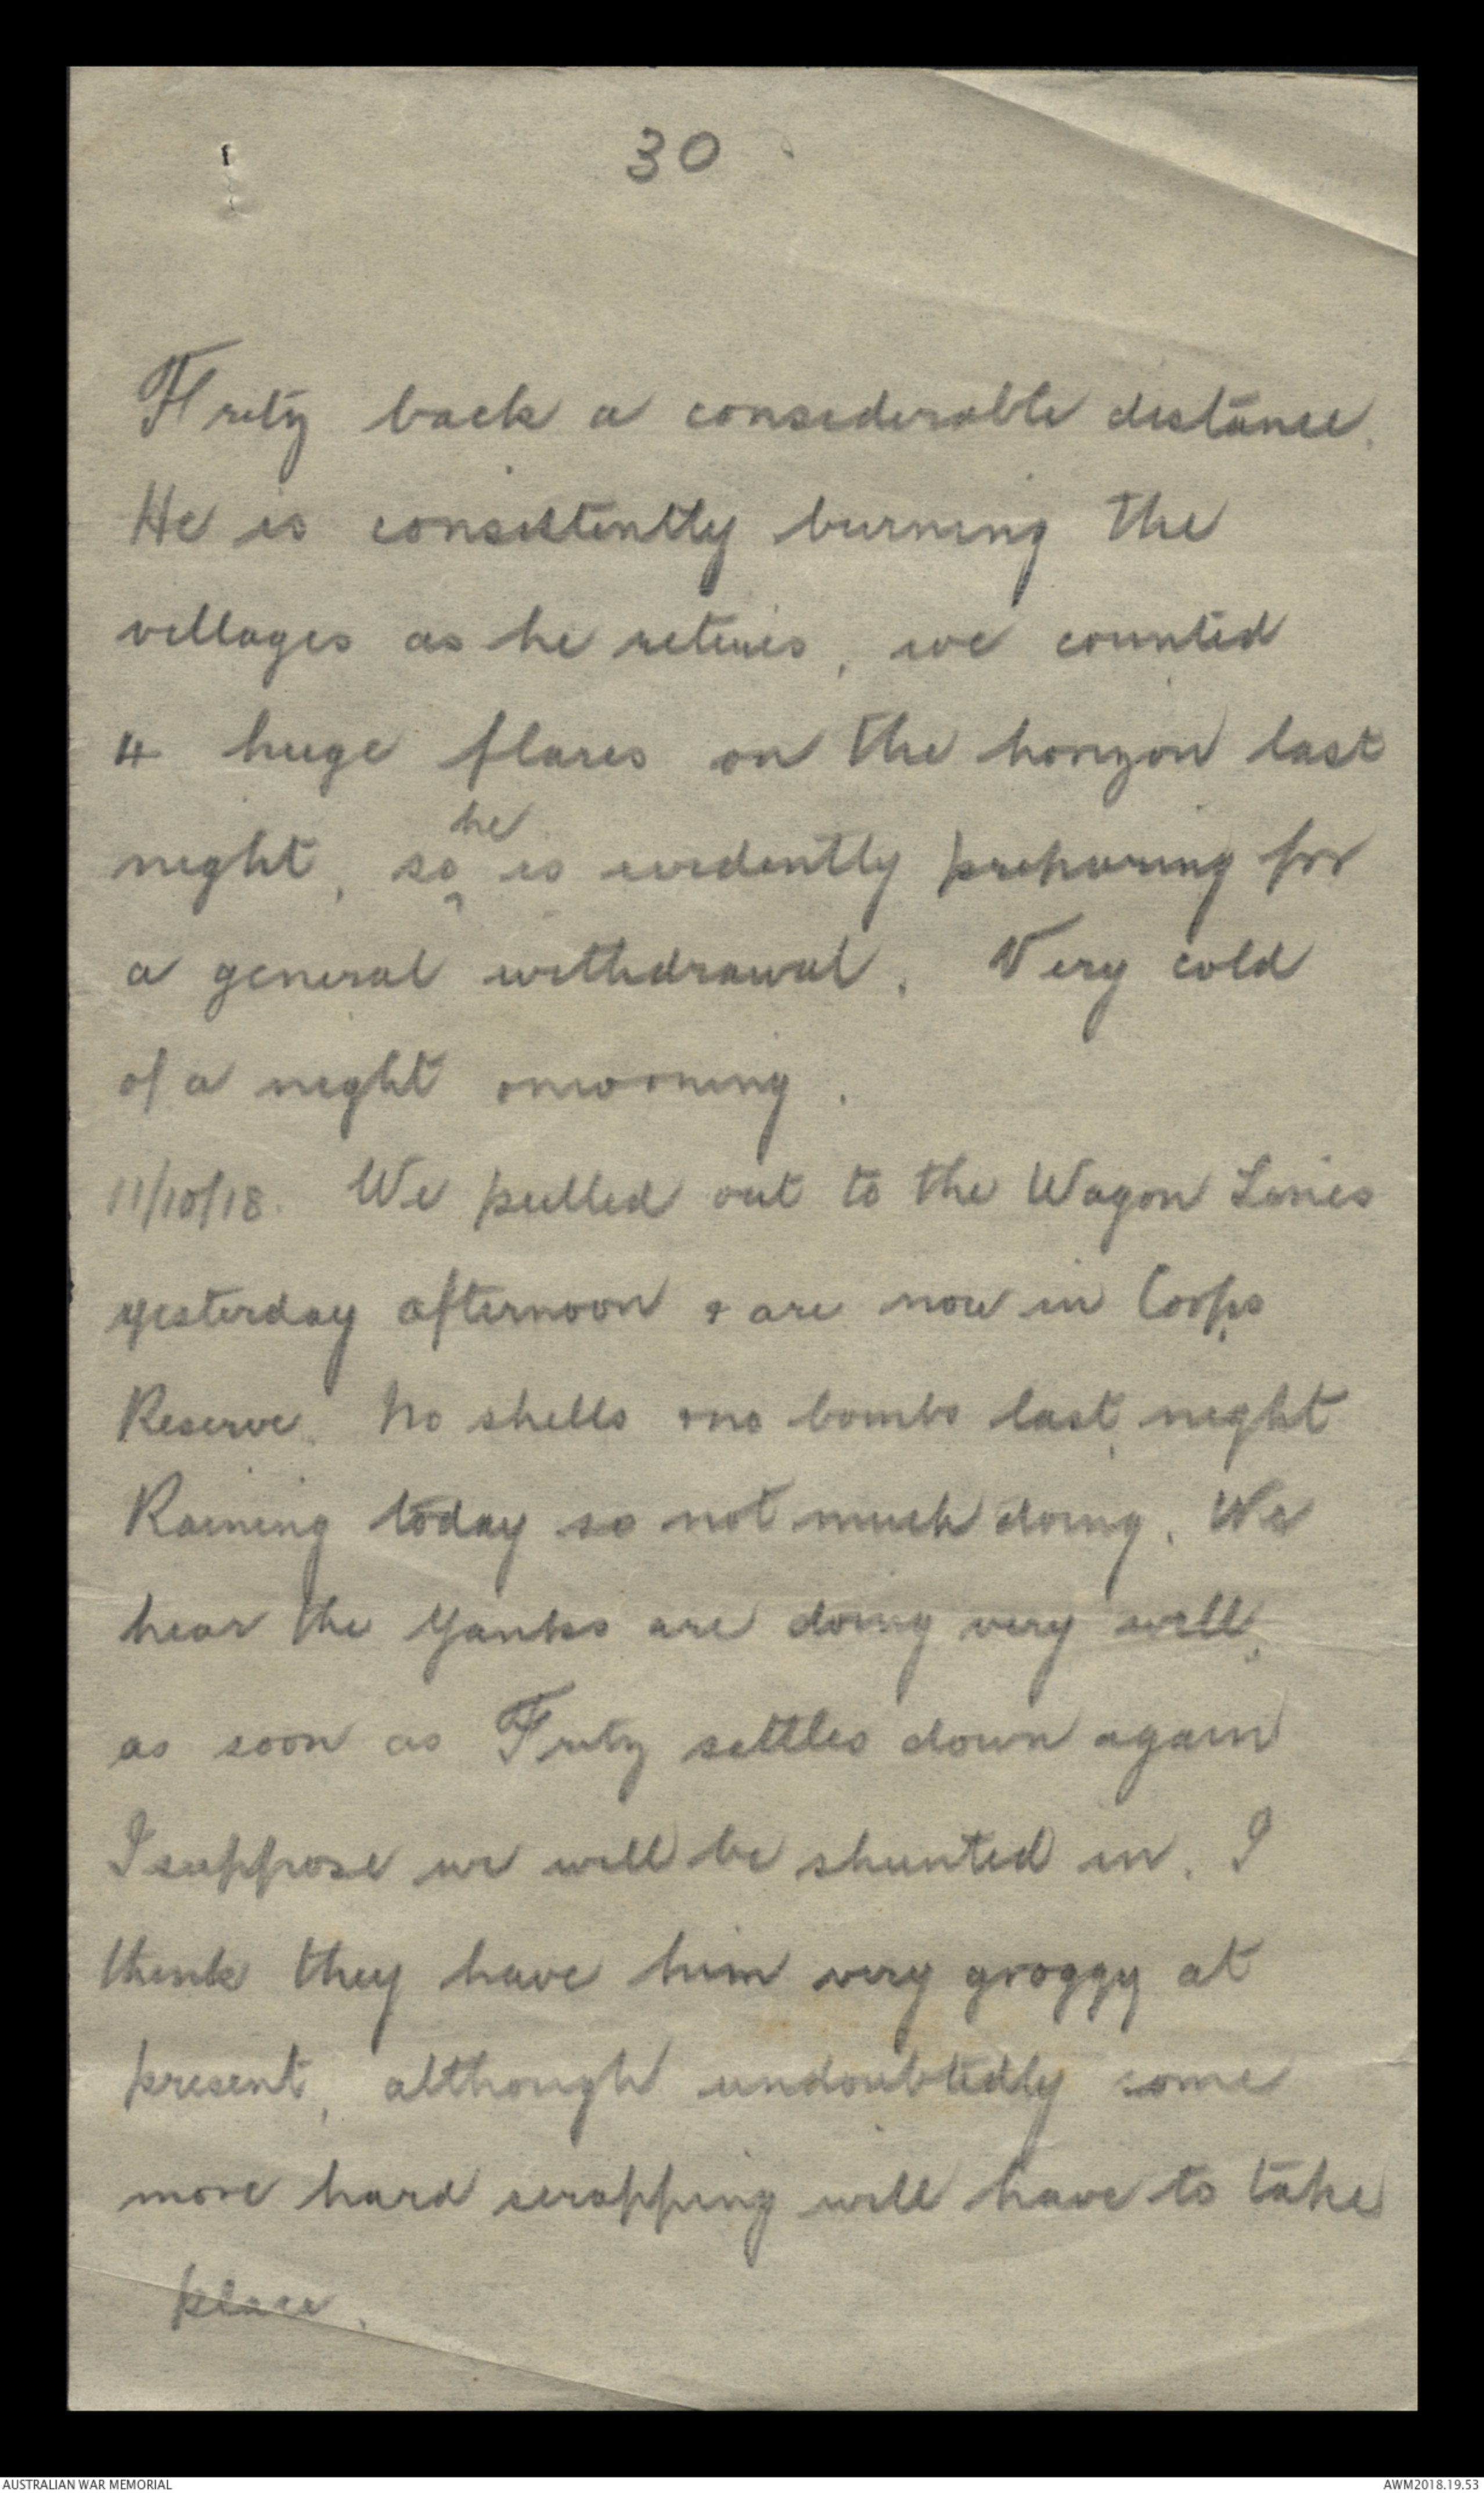 30
Fritz back a considerable distance.
He is consistently burning the
villages as he retires, we counted
4 huge flares on the horizon last
he
night, so is evidently preparing for
a general withdrawal. Very cold
of a night & morning.
11/10/18. We pulled out to the Wagon Lines
yesterday afternoon & are now in Corps
Reserve. No shells & no bombs last night
Raining today so not much doing. We
hear the Yanks are doing very well,
as soon as Fritz settles down again
I suppose we will be shunted in. I
think they have him very groggy at
present, although undoubtedly some
more hard scrapping will have to take
place.
AUSTRALIAN WAR MEMORIAL
AWM2018.19.53